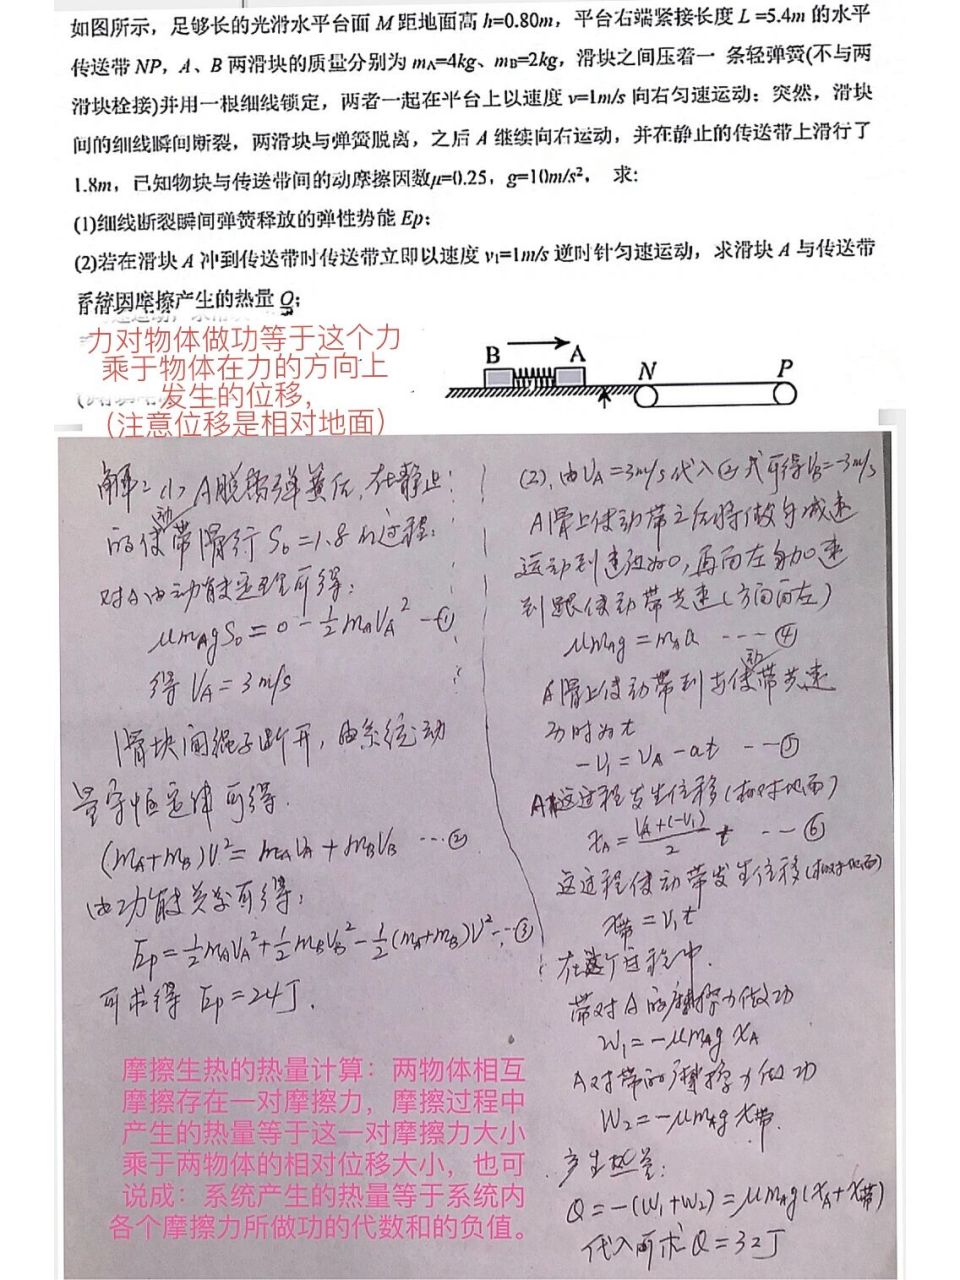 如图所示，足够长的光滑水平台面 M 距地面高 h=0.80m，平台右端紧接长度 L =5.4m 的水平
传送带 NP，A、B 两滑块的质量分别为 mA=4kg、mB=2kg，滑块之间压着一 条轻弹簧(不与两
滑块栓接)并用一根细线锁定，两者一起在平台上以速度 v=1m/s 向右匀速运动；突然，滑块
间的细线瞬间断裂，两滑块与弹簧脱离，之后 A 继续向右运动，并在静止的传送带上滑行了
1.8m，已知物块与传送带间的动摩擦因数μ=0.25，g=10m/s²， 求:
(1)细线断裂瞬间弹簧释放的弹性势能 Ep;
(2)若在滑块 A 冲到传送带时传送带立即以速度 v₁=1m/s 逆时针匀速运动，求滑块 A 与传送带
系统因摩擦产生的热量 Q;
力对物体做功等于这个力
乘于物体在力的方向上
发生的位移，
（注意位移是相对地面）
B A
N P
解：(1) A脱离弹簧后，在静止
的传动带滑行 S₀=1.8m过程：
对A由动能定理可得：
μmAgS₀ = 0 - ½mAVA² -①
得 VA = 3m/s
滑块间绳子断开，由系统动
量守恒定律可得.
(mA+mB)V = mAVA + mBVB ...②
由功能关系可得：
Ep = ½mAVA² + ½mBVB² - ½(mA+mB)V² ...③
可求得 Ep = 24J.
摩擦生热的热量计算：两物体相互
摩擦存在一对摩擦力，摩擦过程中
产生的热量等于这一对摩擦力大小
乘于两物体的相对位移大小，也可
说成：系统产生的热量等于系统内
各个摩擦力所做功的代数和的负值。
(2).由VA=3m/s代入②式可得VB=-3m/s
A滑上传动带之后将做匀减速
运动到速度为0,再向左加速
到跟传动带共速(方向向左)
μmAg = mAa ---④
A滑上传动带到与传动带共速
历时为t
-V₁ = VA - at --⑤
A在这过程发生位移(相对地面)
xA = (VA+(-V₁))/2 t --⑥
这过程传动带发生位移(相对地面)
x带 = V₁t
在这个过程中.
带对A的摩擦力做功
W₁ = -μmAg xA
A对带的摩擦力做功
W₂ = -μmAg x带.
产生热量:
Q = -(W₁+W₂) = μmAg(xA+x带)
代入可求 Q=32J